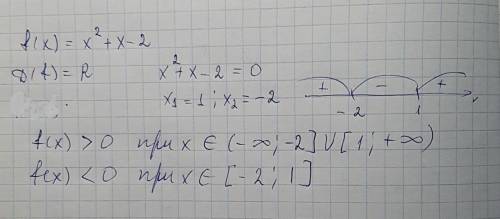 f(x) = x² + x - 2
D(f) = R x² + x - 2 = 0
x₁ = 1 ; x₂ = -2
+ - +
-2 1 x
f(x) > 0 при x ∈ (-∞; -2] ∪ [1; +∞)
f(x) < 0 при x ∈ [-2; 1]